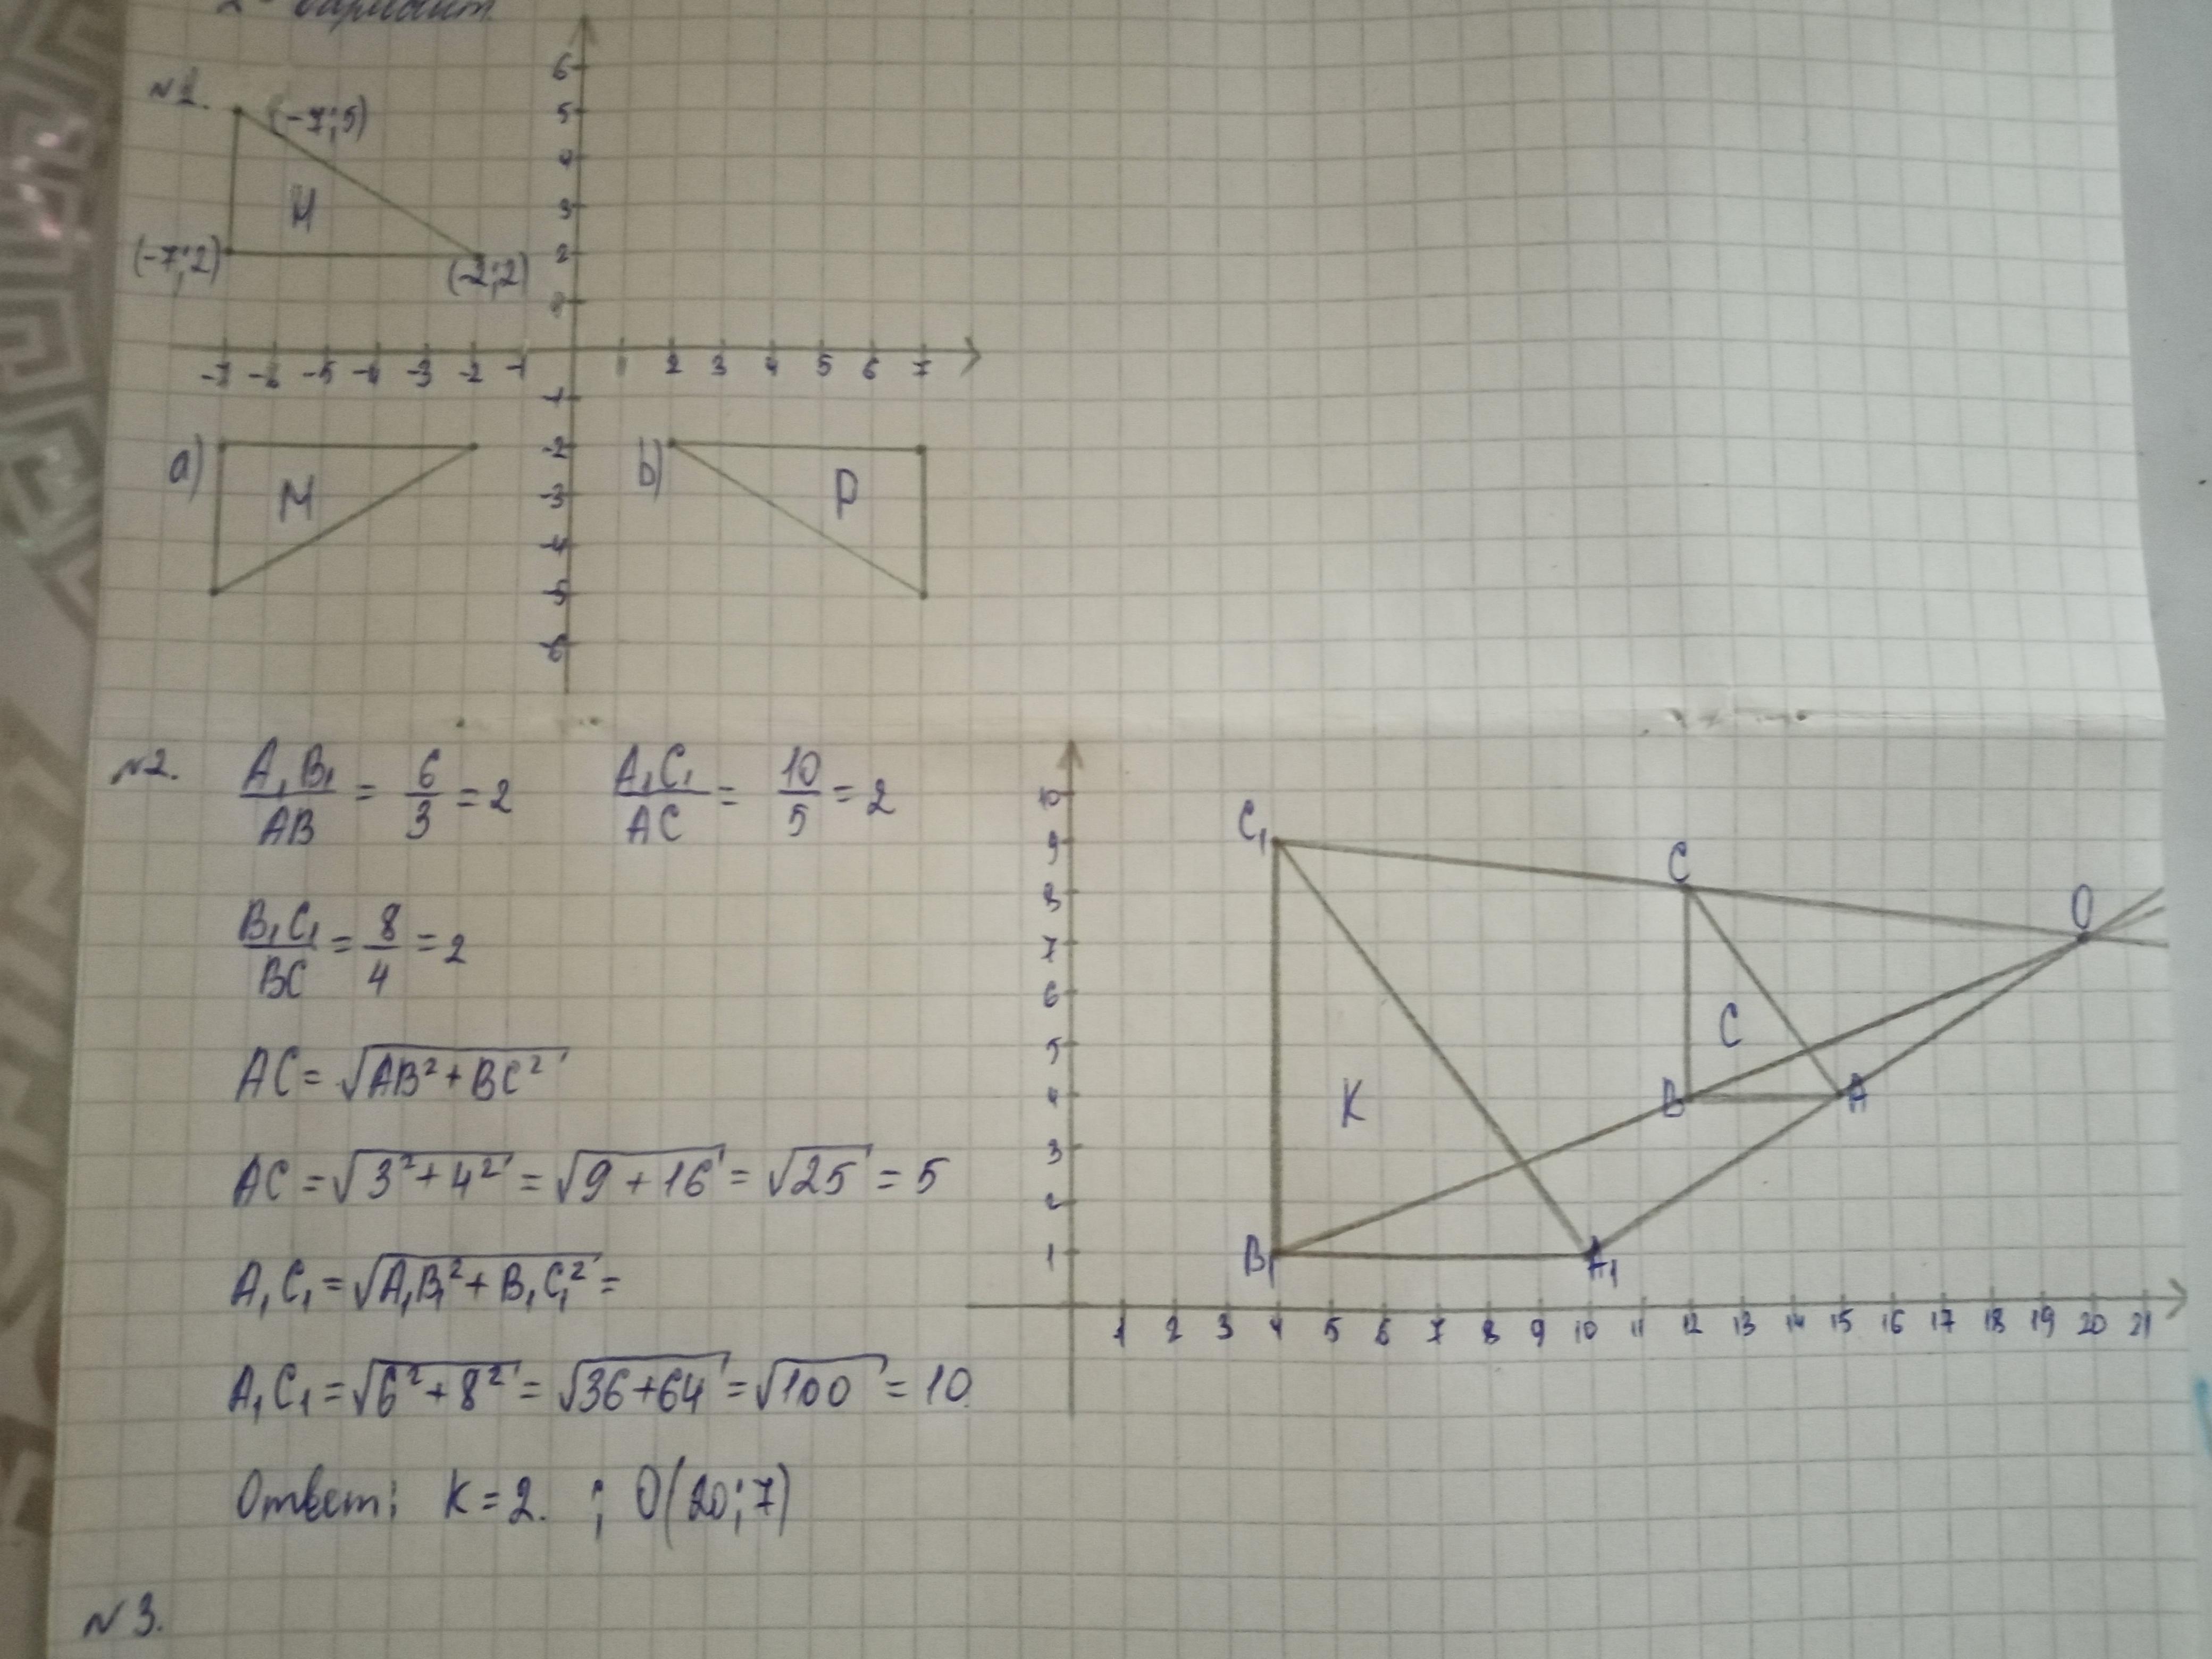 2 вариант.
№1.
(-7;5)
(-7;2)
(-2;2)
6
5
4
3
2
-7 -6 -5 -4 -3 -2 -1 1 2 3 4 5 6 7
-1
-2
-3
-4
-5
-6
a) M
b) P
№2. A₁B₁/AB = 6/3 = 2 A₁C₁/AC = 10/5 = 2
B₁C₁/BC = 8/4 = 2
AC = √AB²+BC²
AC = √3²+4² = √9+16 = √25 = 5
A₁C₁ = √A₁B₁²+B₁C₁² =
A₁C₁ = √6²+8² = √36+64 = √100 = 10.
Ответ: K=2. ; O(20;7)
10
9
8
7
6
5
4
3
2
1
C₁ C O
K C
B A
B₁ A₁
1 2 3 4 5 6 7 8 9 10 11 12 13 14 15 16 17 18 19 20 21
№3.